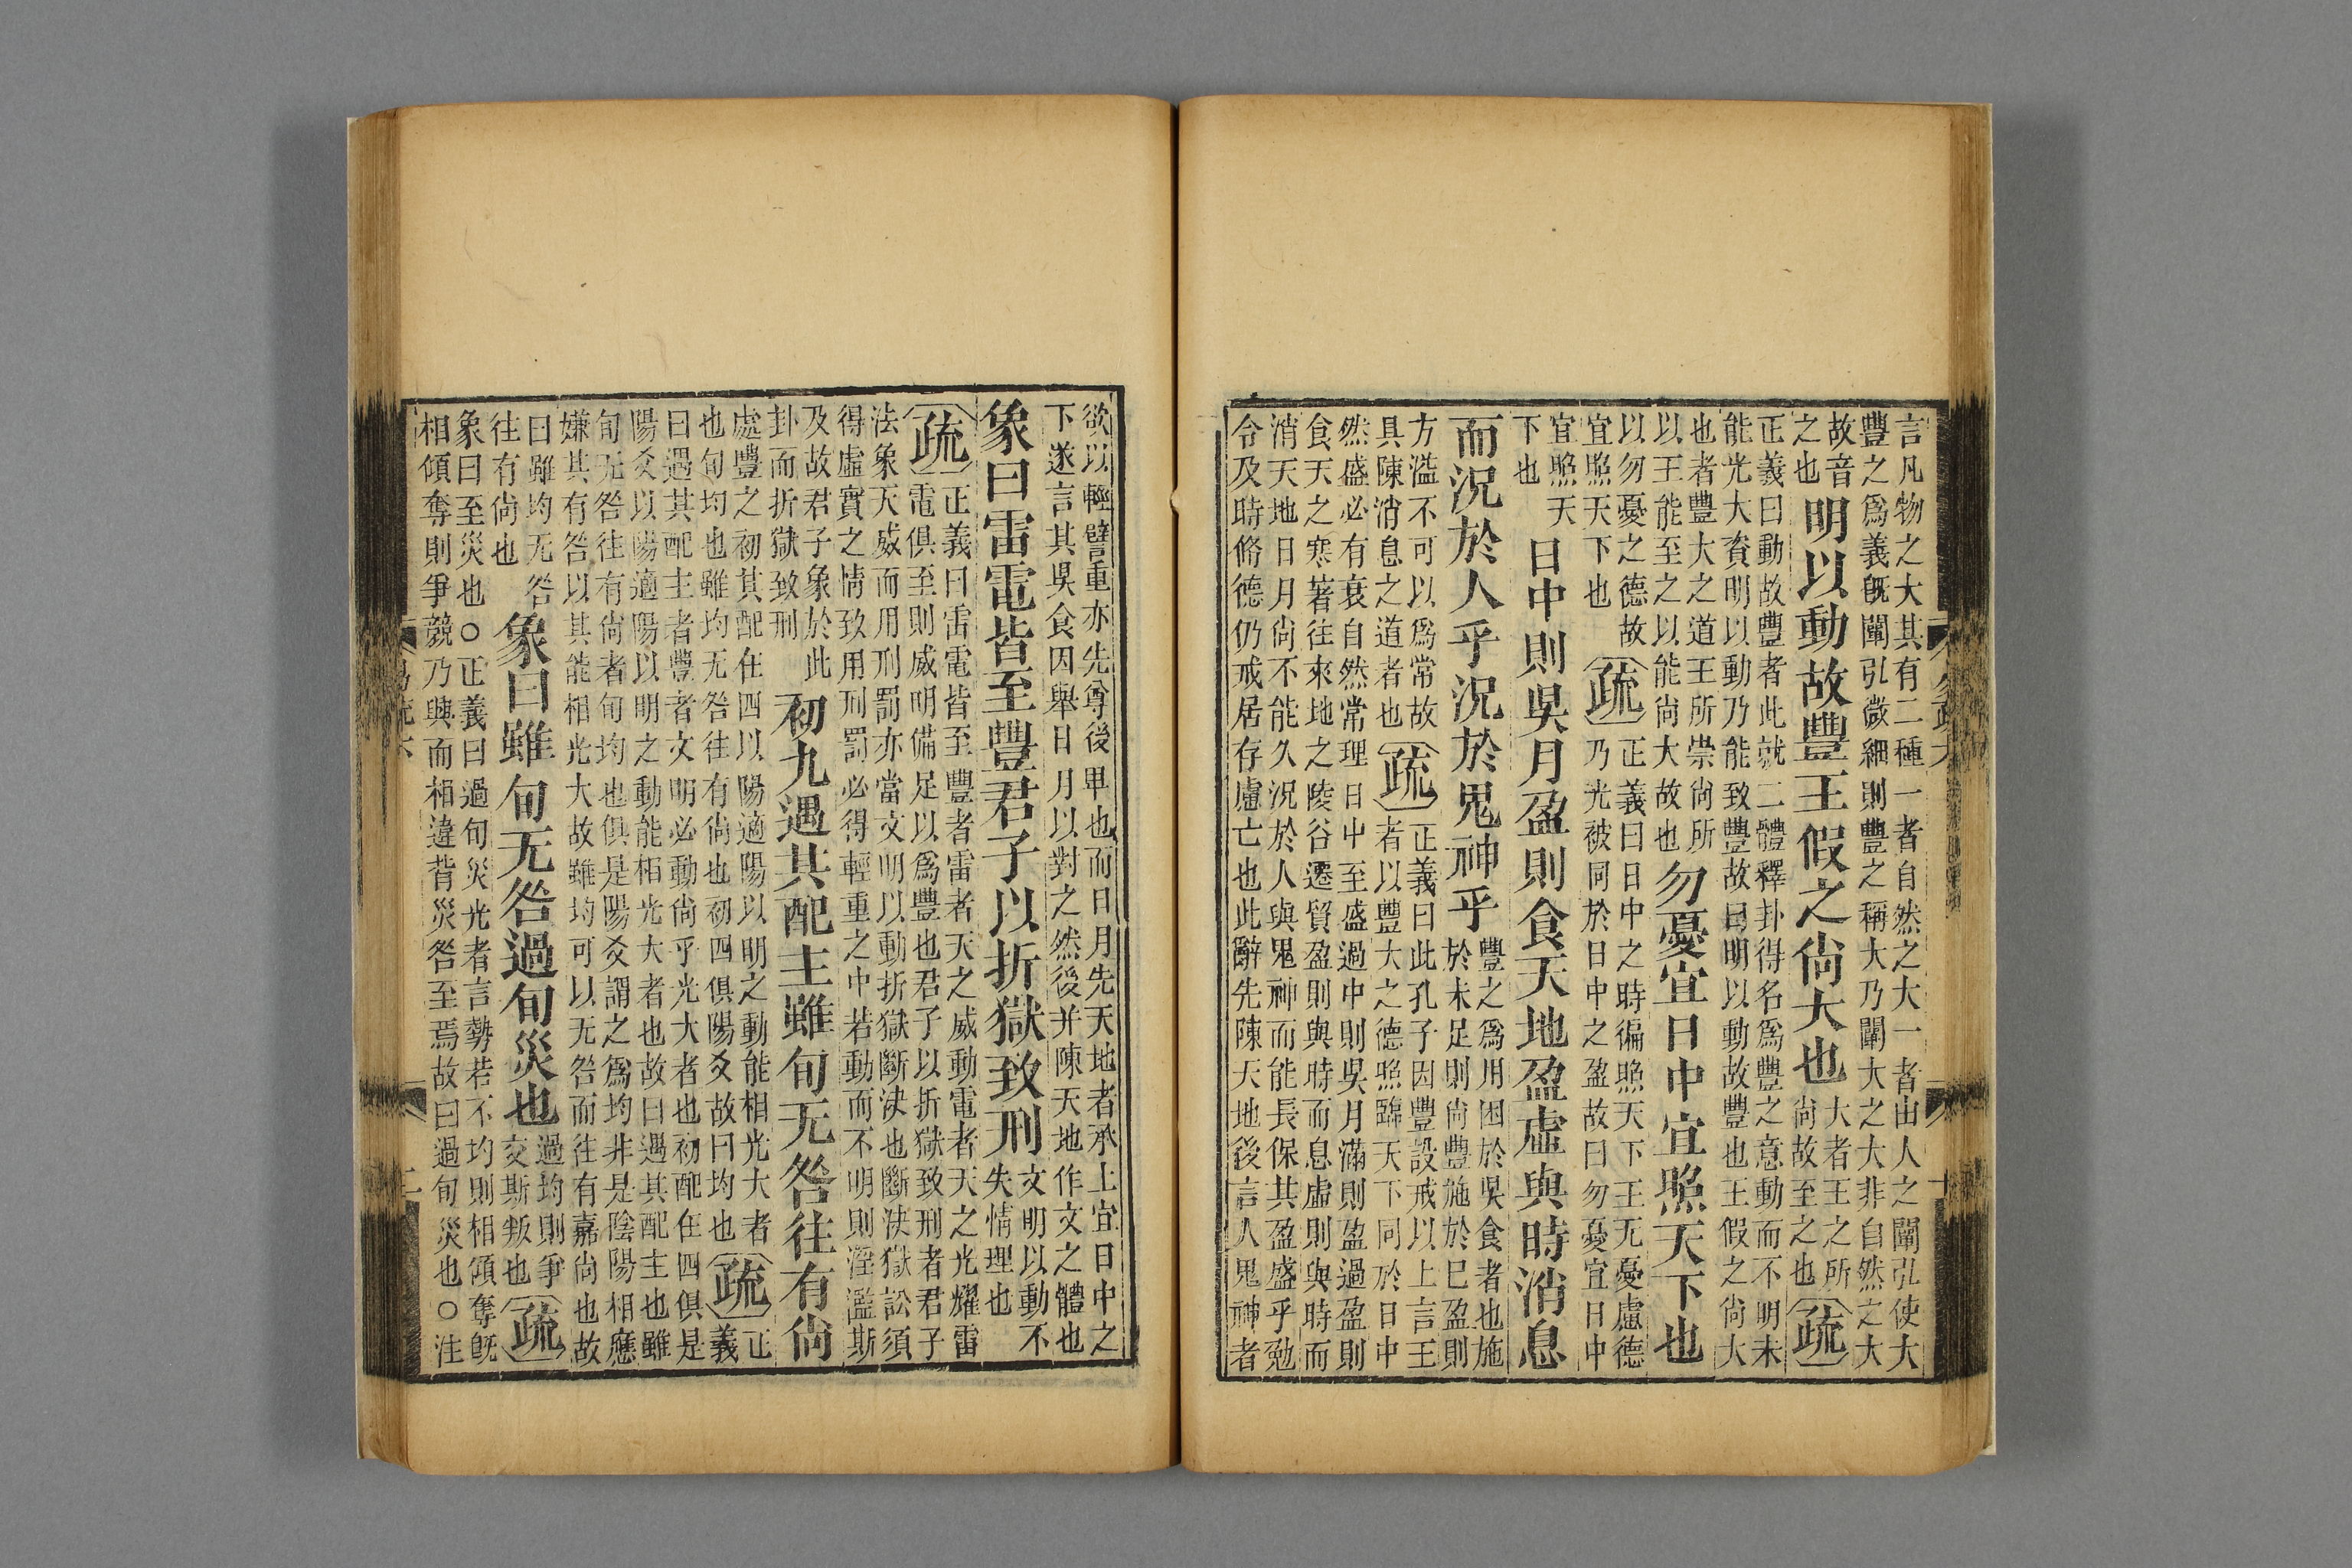 言凡物之大其有二種一者自然之大一者由人之闡弘使大
豐之爲義旣闡弘微細則豐之稱大乃闡大之大非自然之大
故音
之也
明以動故豐王假之尚大也
大者王之所
尚故至之也
疏
正義曰動故豐者此就二體釋卦得名爲豐之意動而不明未
能光大資明以動乃能致豐故曰明以動故豐也王假之尚大
也者豐大之道王所崇尚所
以王能至之以能尚大故也
勿憂宜日中宜照天下也
以勿憂之德故
宜照天下也
疏
正義曰日中之時徧照天下王无憂慮德
乃光被同於日中之盈故曰勿憂宜日中
宜照天
下也
日中則昃月盈則食天地盈虛與時消息
而況於人乎況於鬼神乎
豐之爲用困於昃食者也施
於未足則尚豐施於已盈則
方溢不可以爲常故
具陳消息之道者也
疏
正義曰此孔子因豐設戒以上言王
者以豐大之德照臨天下同於日中
然盛必有衰自然常理日中至盛過中則昃月滿則盈過盈則
食天之寒暑往來地之陵谷遷貿盈則與時而息虛則與時而
消天地日月尚不能久況於人與鬼神而能長保其盈盛乎勉
令及時脩德仍戒居存慮亡也此辭先陳天地後言人鬼神者
欲以輕譬重亦先尊後卑也而日月先天地者承上宜日中之
下遂言其昃食因舉日月以對之然後并陳天地作文之體也
象曰雷電皆至豐君子以折獄致刑
文明以動不
失情理也
疏
正義曰雷電皆至豐者雷者天之威動電者天之光耀雷
電俱至則威明備足以爲豐也君子以折獄致刑者君子
法象天威而用刑罰亦當文明以動折獄斷決也斷決獄訟須
得虛實之情致用刑罰必得輕重之中若動而不明則淫濫斯
及故君子象於此
卦而折獄致刑
初九遇其配主雖旬无咎往有尚
處豐之初其配在四以陽適陽以明之動能相光大者
也旬均也雖均无咎往有尚也初四俱陽爻故曰均也
疏
正
義
曰遇其配主者豐者文明必動尚乎光大者也初配在四俱是
陽爻以陽適陽以明之動能相光大者也故曰遇其配主也雖
旬无咎往有尚者旬均也俱是陽爻謂之爲均非是陰陽相應
嫌其有咎以其能相光大故雖均可以无咎而往有嘉尚也故
曰雖均无咎
往有尚也
象曰雖旬无咎過旬災也
過均則爭
交斯叛也
疏
象曰至災也○正義曰過旬災光者言勢若不均則相傾奪旣
相傾奪則爭競乃興而相違背災咎至焉故曰過旬災也○注